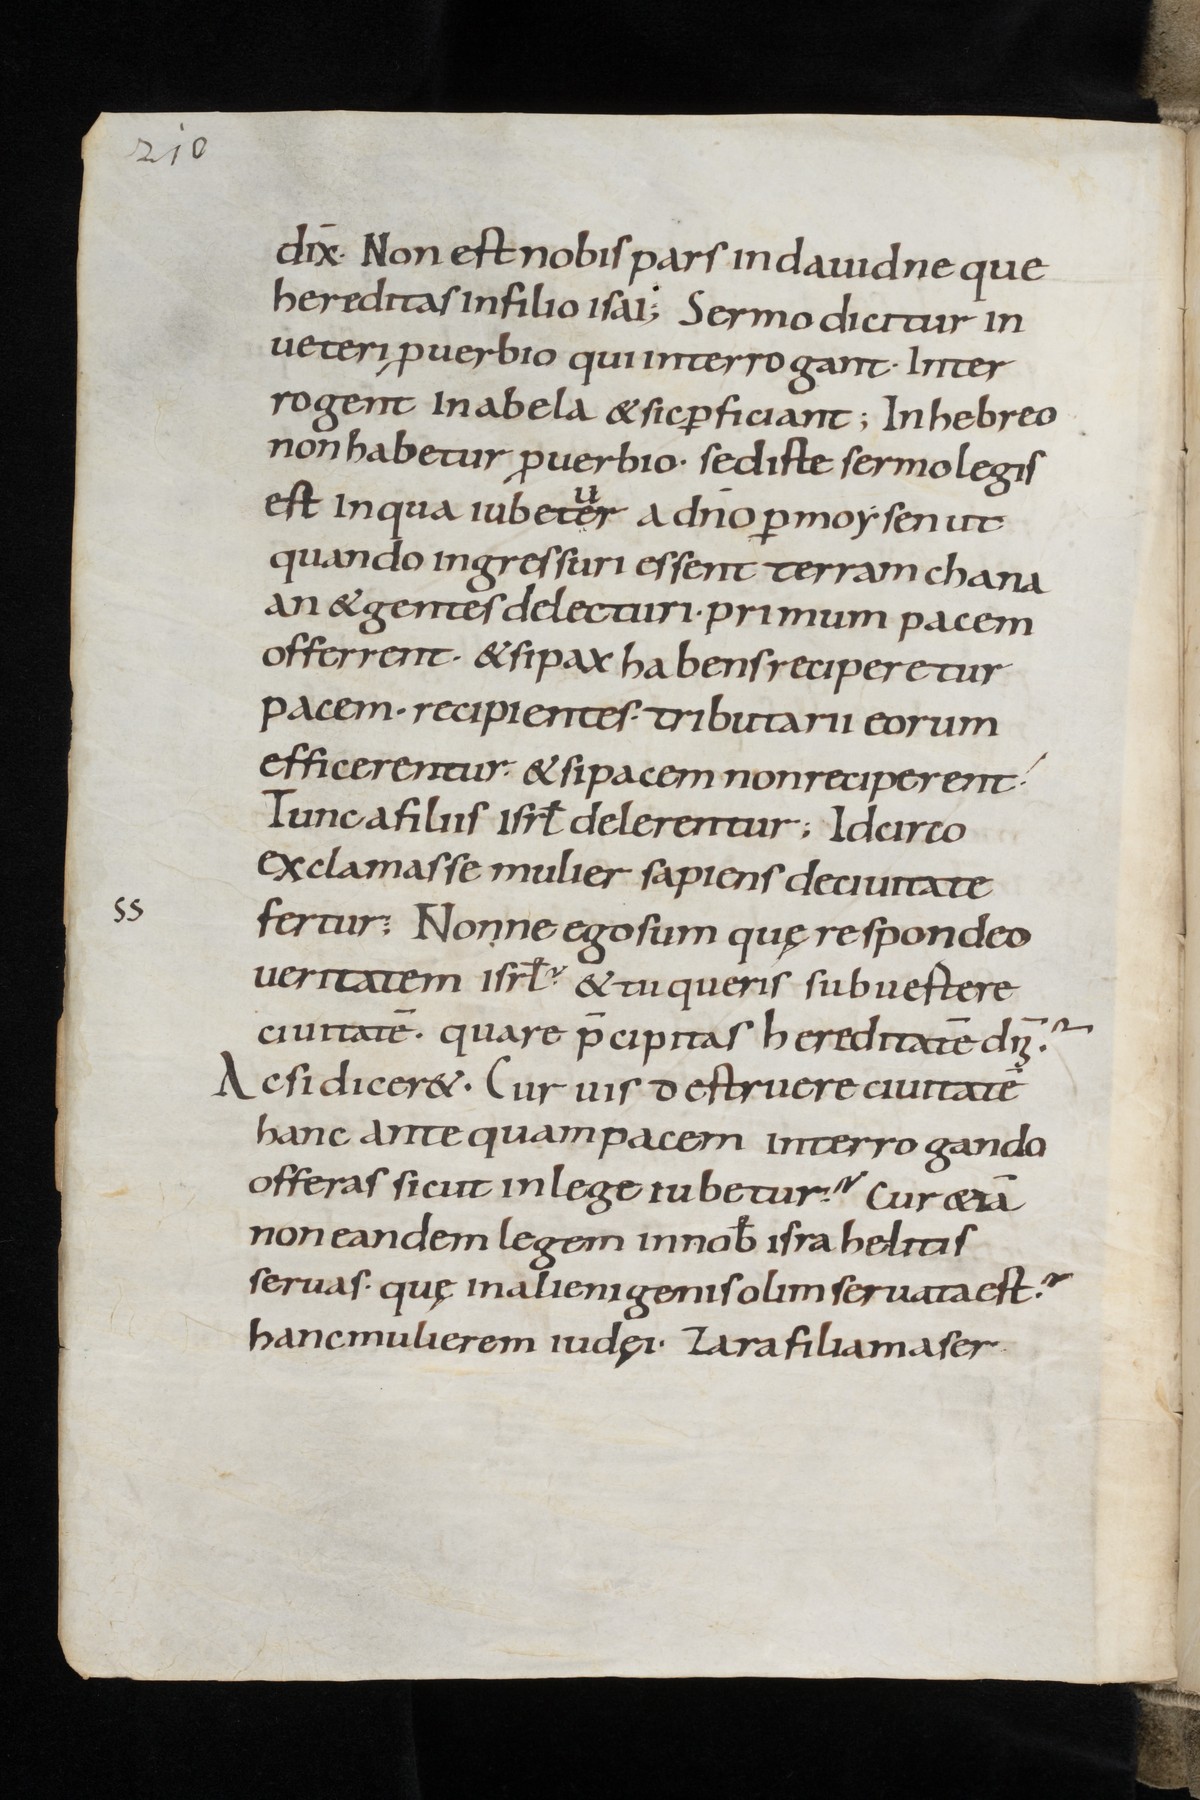 210
dix̄· Non est nobis pars in dauid ne que
hereditas in filio isai; Sermo dicitur in
ueteri puerbio qui interrogant· Inter
rogent in abela & sic ꝑficiant; In hebreo
non habetur ꝓuerbio· sed iste sermo legis
est In qua iubetur a dn̄o ꝑ moẏsen ut
quando ingressuri essent terram chana
an & gentes delecturi· primum pacem
offerrent· & si pax habens reciperetur
pacem· recipientes· tributarii eorum
efficerentur· & si pacem non reciperent·
Tunc a filiis isrł delerentur; Idcirco
exclamasse mulier sapiens de ciuitate
ss fertur; Nonne ego sum quę respondeo
ueritatem isrł? & tu queris subuestere
ciuitatē· quare p̄cipitas hereditatē dn̄i?
Ac si dicer&· Cur uis destruere ciuitatē
hanc ante quam pacem interrogando
offeras sicut in lege iubetur? Cur &iā
non eandem legem in nob̄ israhelitis
seruas· quę in alienigenis olim seruata est?
hanc mulierem iudęi· Zara filiam aser